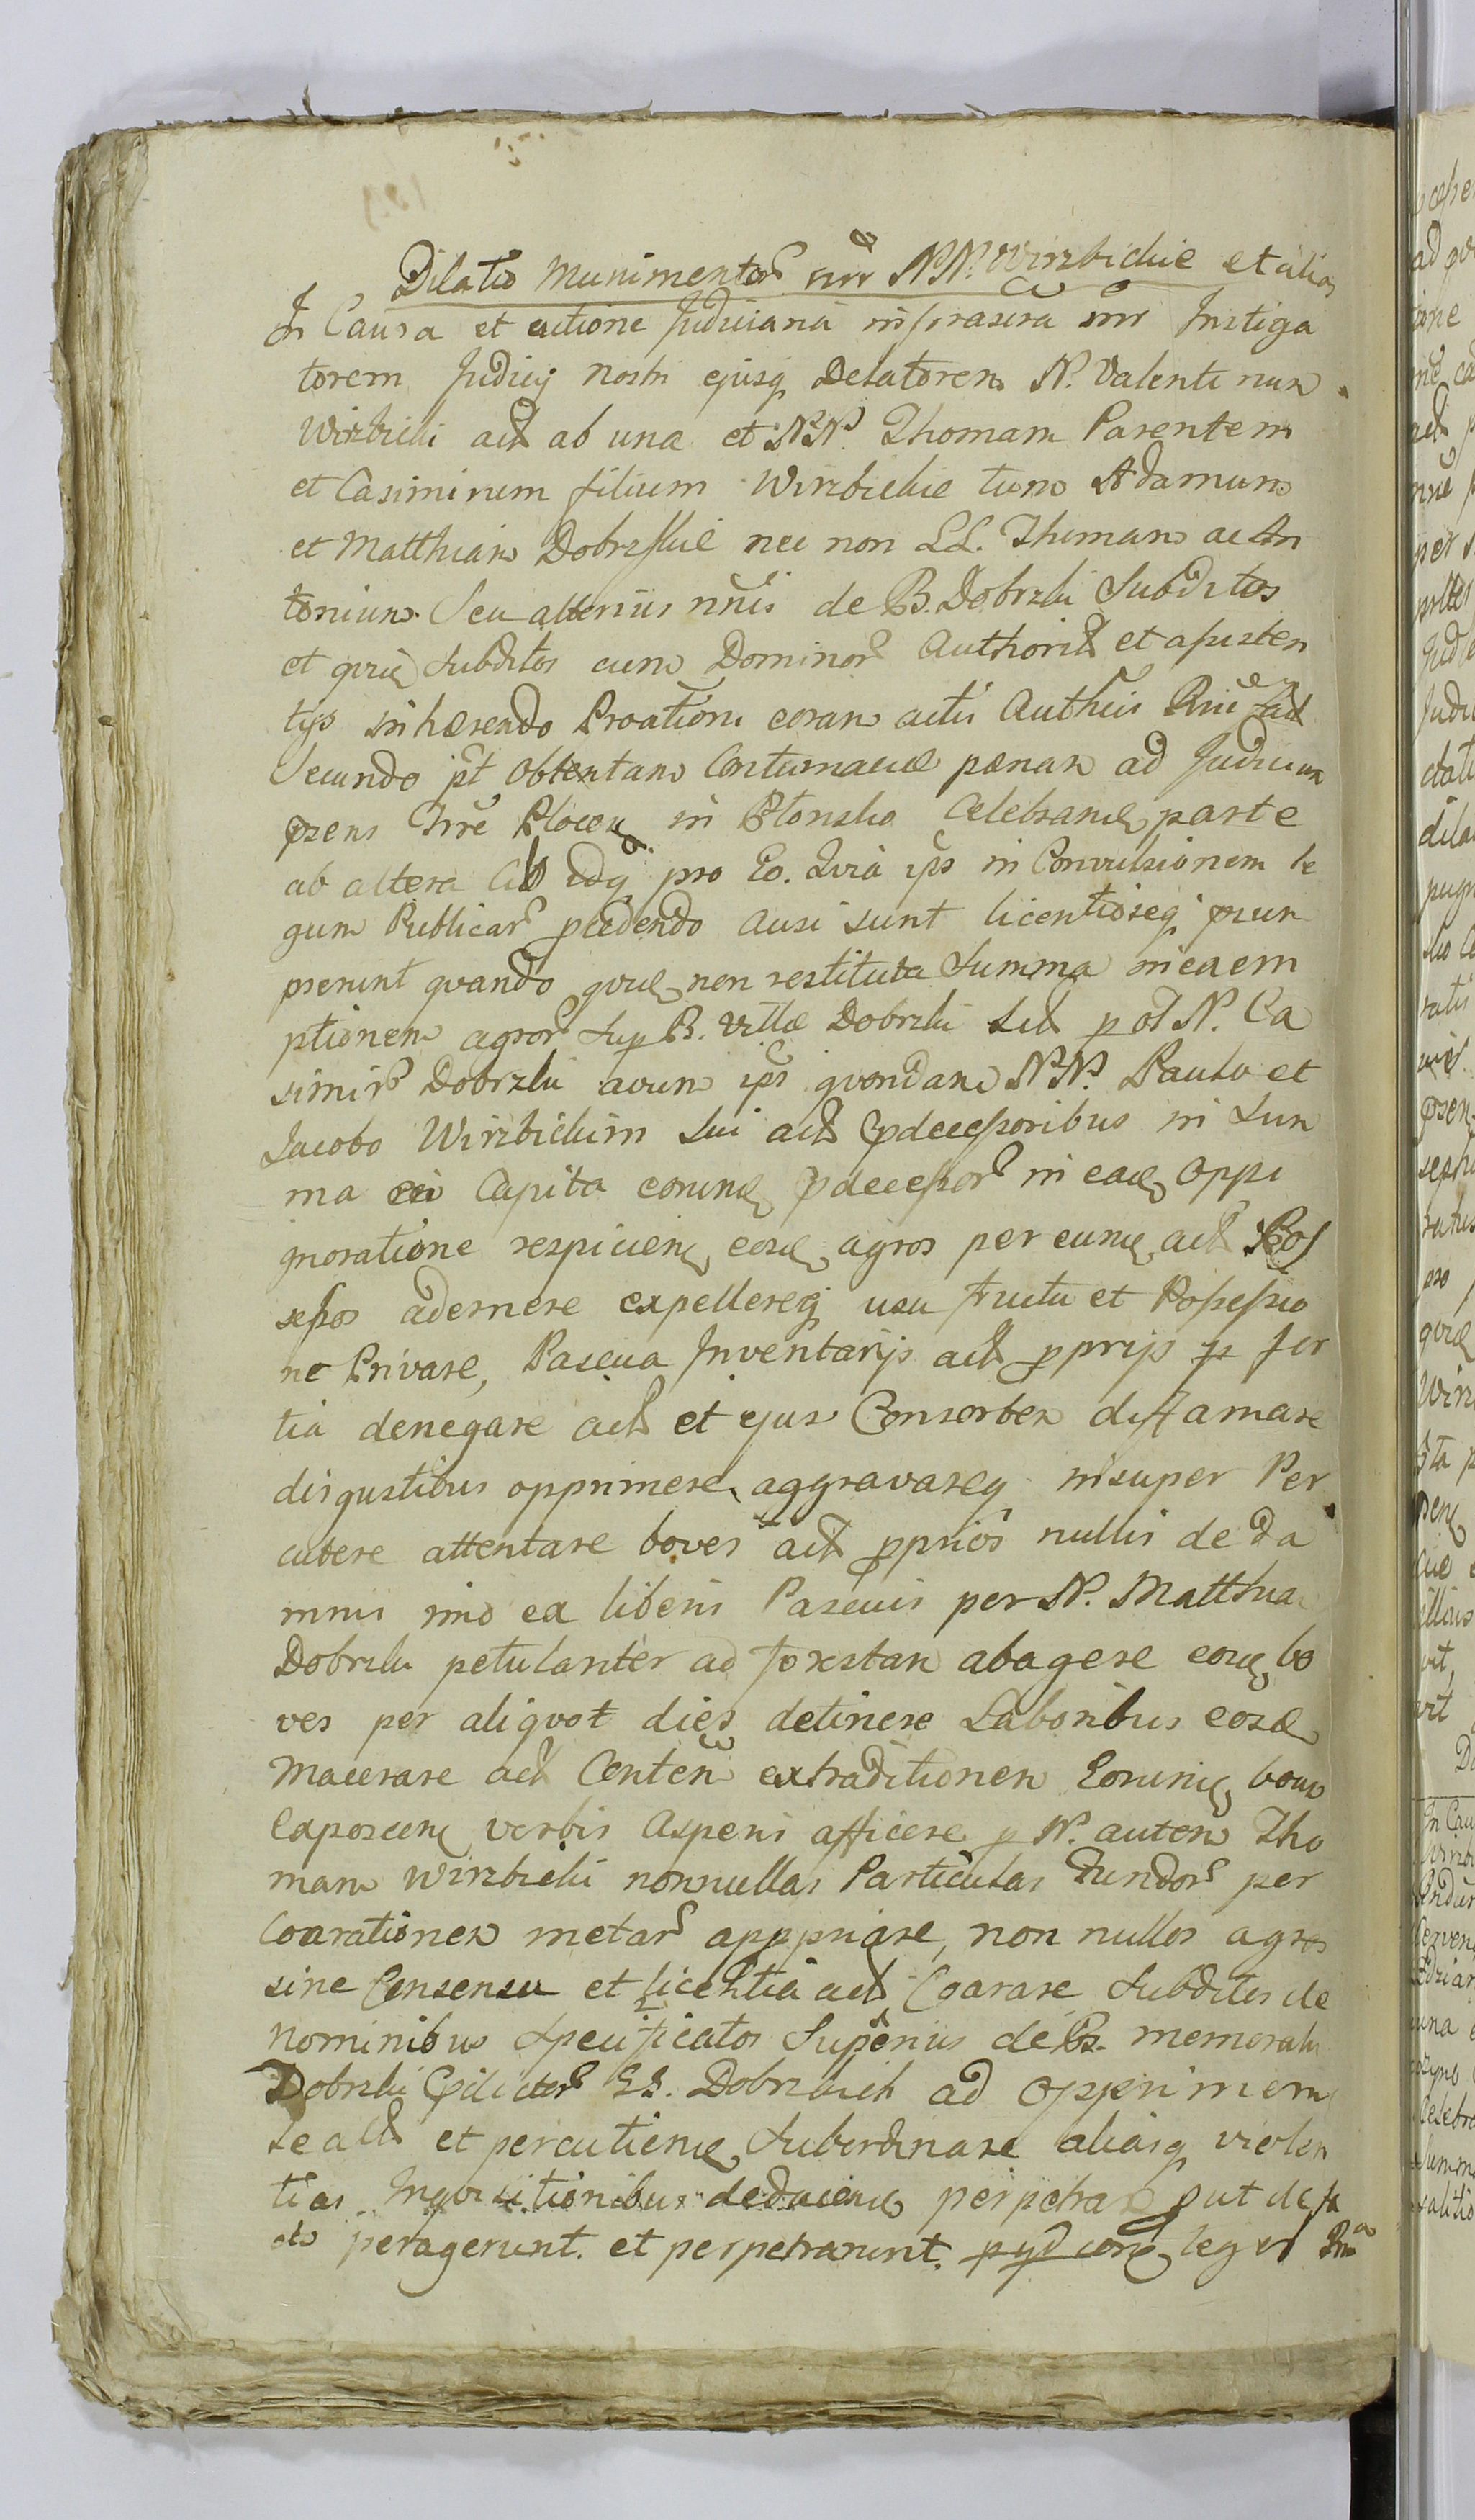 Dilatio Munimentor inr NN. Wirzbickie et alios
In Causa et actione Judiciaria infrascra inr Instiga
torem Judicij nostri ejusq Delatorem N. Valentinum
Wirzbicki act ab una et NN. Thomam Parentem
et Casimirum filium Wirzbickie tum Adamum
et Matthiam Dobrzskie nec non LL. Thomam ac An
tonium Seu alterius nnis de B. Dobrzki Subditos
et qvie Subditos cum Dominor Authorit et assisten
tijs inhærendo Proationi coram actis Authcis
Secundo pt obtentam Contumaciæ pænam ad Judicium
præns Trre Plocen in Plonsko Celebrand parte
ab altera Cit idq pro Eo. Qvia ips in Convulsionem le
gum Publicar pcedendo ausi sunt licentioseq prum
pserunt qvando qvie non restituta Summa in eaem
ptionem agror Sup B. Villæ Dobrzki Sit p ol N. Ca
simir Dobrzki avum ips qvondam NN. Paulo et
Jacobo Wirzbickim Sui act pdecessoribus in Sum
ma Capita eorund pdecessor in ead oppi
gnoratione respicien eosd agros per eund act Pos
sessos ademere expellereq usu fructu et Possessio
ne Privare, Pascua Inventarijs act pprijs p for
tia denegare act et ejus Consortem diffamare
disgustibus opprimere aggravareq insuper Per
cutere attentare boves act pprios nullis de da
mnis imo ex liberis Pascuis per N. Matthia
Dobrzki petulanter ad forestam abagere eosd bo
ves per aliqvot dies detinere Laboribus eosd
Macerare act Conten extraditionem Eorund boum
Exposcen verbis Asperis afficere p N. autem Tho
mam Wirzbicki nonnullas Particulas Fundor per
Coarationem metar apppriare, non nullos agros
sine Consensu et licentia act Coarare Subditos de
nominibus Specificatos Superius de B. memorata
Dobrzki pdictor LL. Dobrzkich ad opprimen
Se act et percutiend Subordinare aliasq violen
tias Inqvisitionibus deducend perpetrar put de fa
cto peragerunt et perpetrarunt. leges